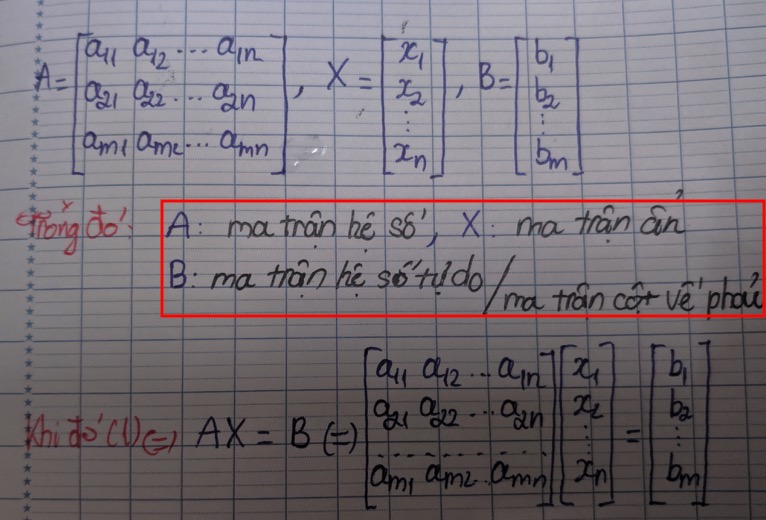 A = [a₁₁ a₁₂ ... a₁ₙ
a₂₁ a₂₂ ... a₂ₙ
aₘ₁ aₘ₂ ... aₘₙ], X = [x₁
x₂
⋮
xₙ], B = [b₁
b₂
⋮
bₘ]
Trong đó: A: ma trận hệ số, X: ma trận ẩn
B: ma trận hệ số tự do / ma trận cột vế phải
Khi đó (1) ⇔ AX = B ⇔ [a₁₁ a₁₂ ... a₁ₙ
a₂₁ a₂₂ ... a₂ₙ
..............
aₘ₁ aₘ₂ ... aₘₙ] [x₁
x₂
⋮
xₙ] = [b₁
b₂
⋮
bₘ]